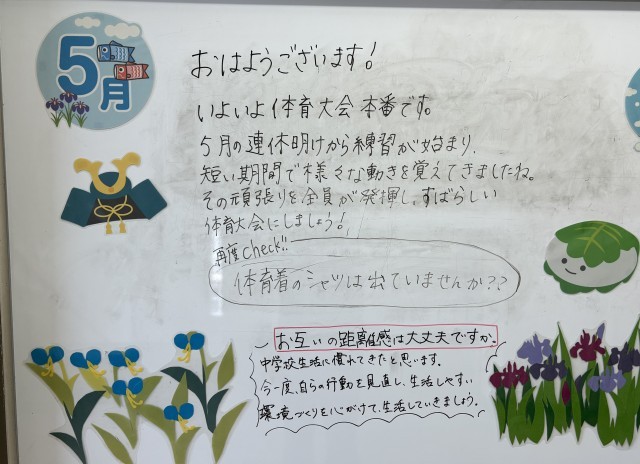 5月
おはようございます!
いよいよ体育大会本番です。
5月の連休明けから練習が始まり、
短い期間で様々な動きを覚えてきましたね。
その頑張りを全員が発揮し、すばらしい
体育大会にしましょう!
再度check!!
体育着のシャツは出ていませんか??
お互いの距離感は大丈夫ですか。
中学校生活に慣れてきたと思います。
今一度、自らの行動を見直し、生活しやすい
環境づくりを心がけて、生活していきましょう。